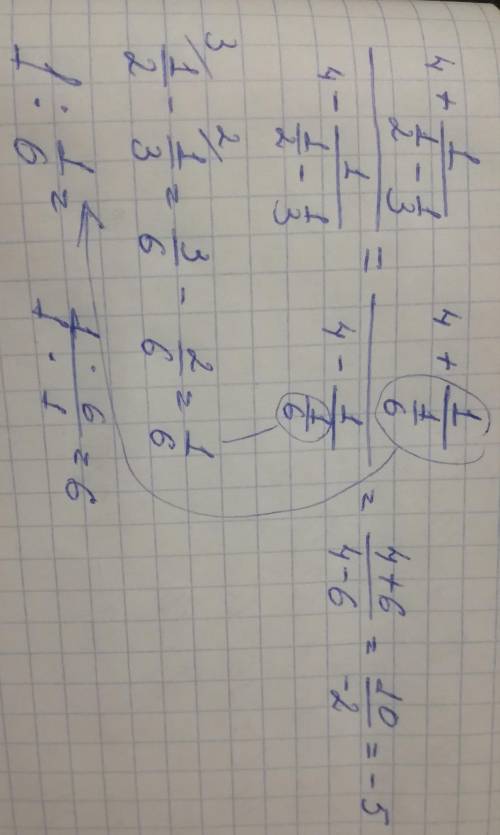 (4 + 1/(1/2 - 1/3)) / (4 - 1/(1/2 - 1/3)) = (4 + 1/(1/6)) / (4 - 1/(1/6)) = (4+6)/(4-6) = 10/-2 = -5
3/ 1/2 - 2/ 1/3 = 3/6 - 2/6 = 1/6
1 : 1/6 = (1 · 6)/(1 · 1) = 6